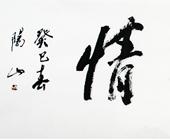 情
癸巳春
腾山